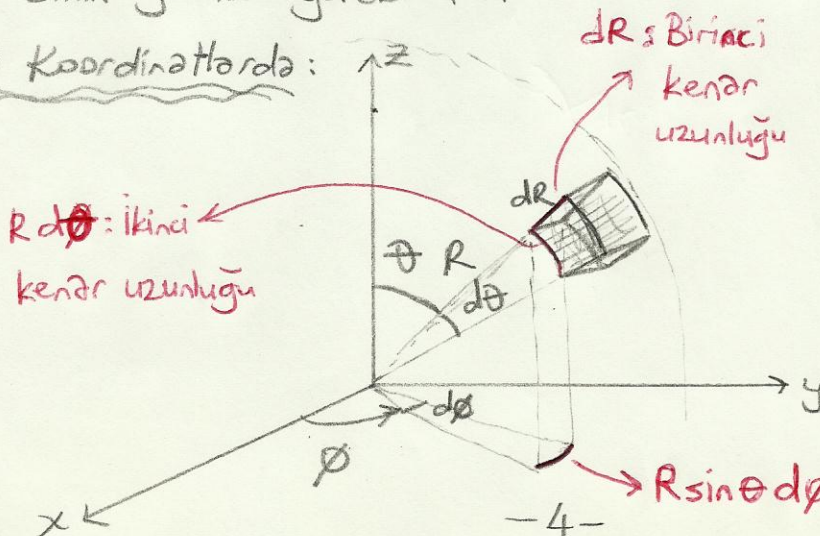 Koordinatlarda:
z
dR : Birinci
kenar
uzunluğu
dR
R dθ : İkinci
kenar uzunluğu
θ R
dθ
y
dø
ø
R sin θ dø
x
-4-